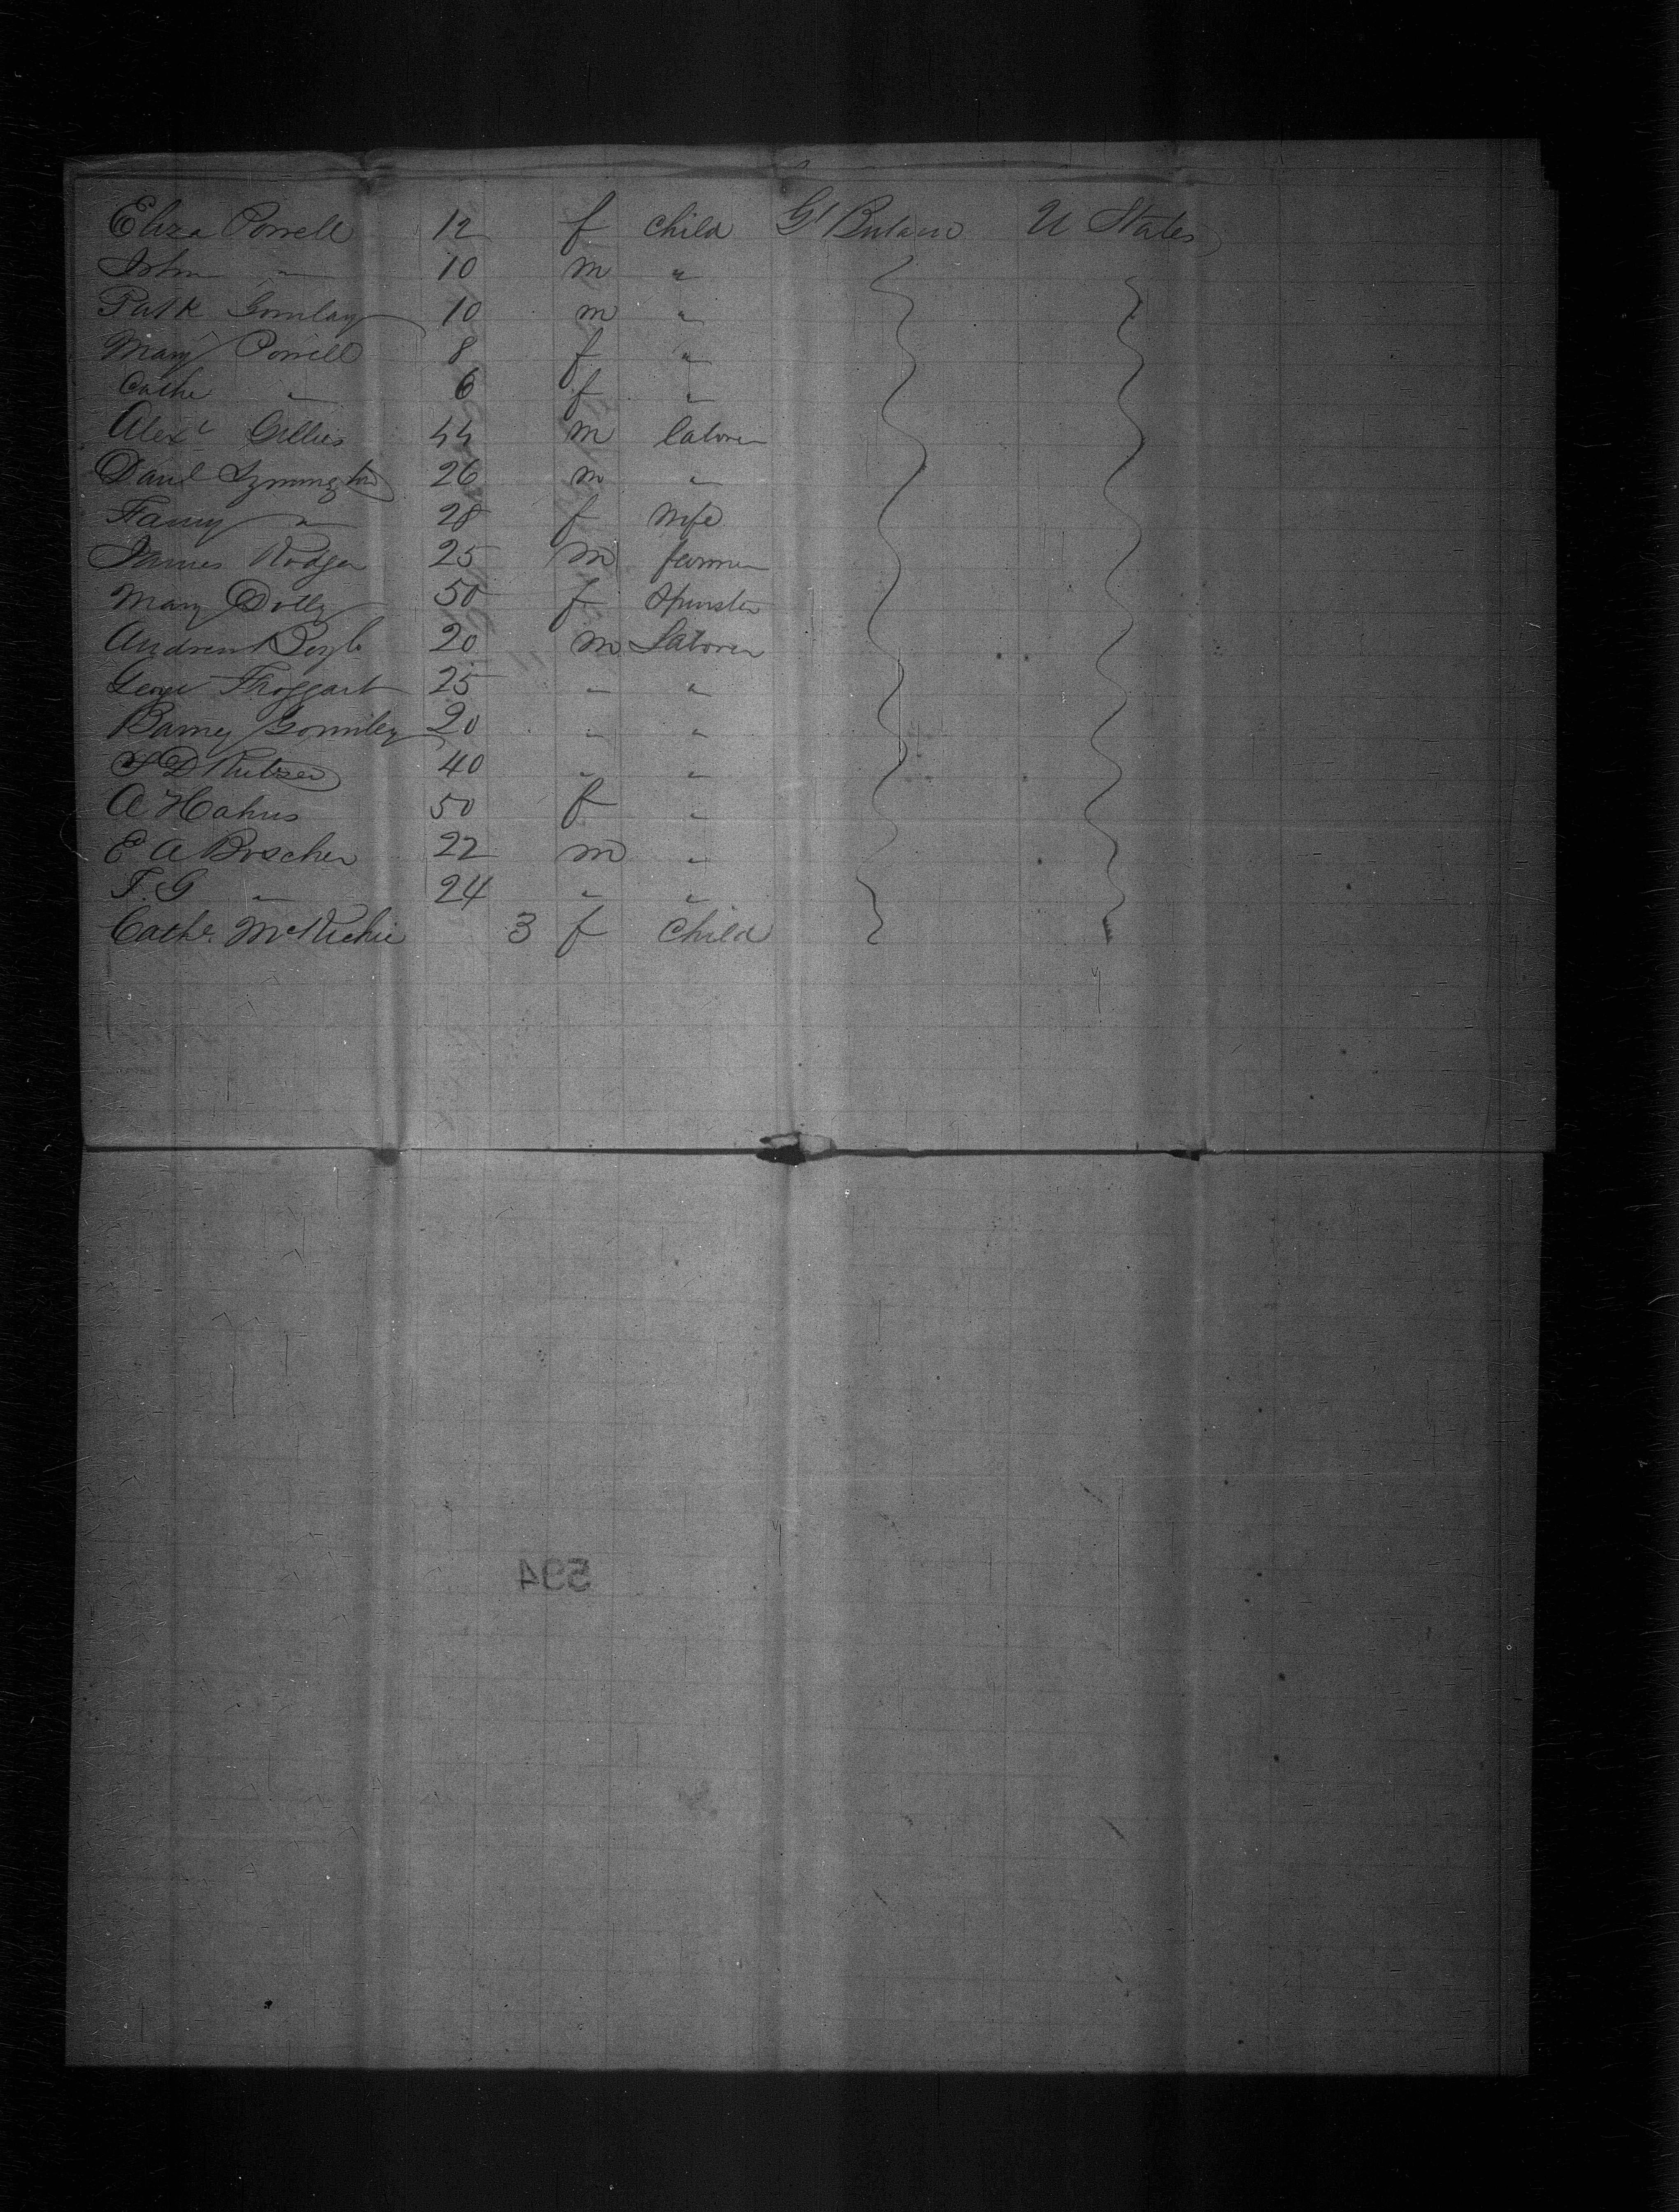 Eliza Powell 12 f child Gt Britain U States
John " 10 m "
Patk Gormlay 10 m "
Mary Powell 8 f "
Cathe " 6 f "
Alexr Gillies 44 m laborer
David Symington 26 m "
Fanny " 28 f Wife
James Rodger 25 m farmer
Mary Dolly 50 f Spinster
Andrew Boyle 20 m Laborer
George Froggart 25 " "
Barney Gormley 20 " "
40 " "
A Hahns 50 f "
E A Boscher 22 m "
F. G " 24 " "
Cathe. McRichie 3 f Child
594